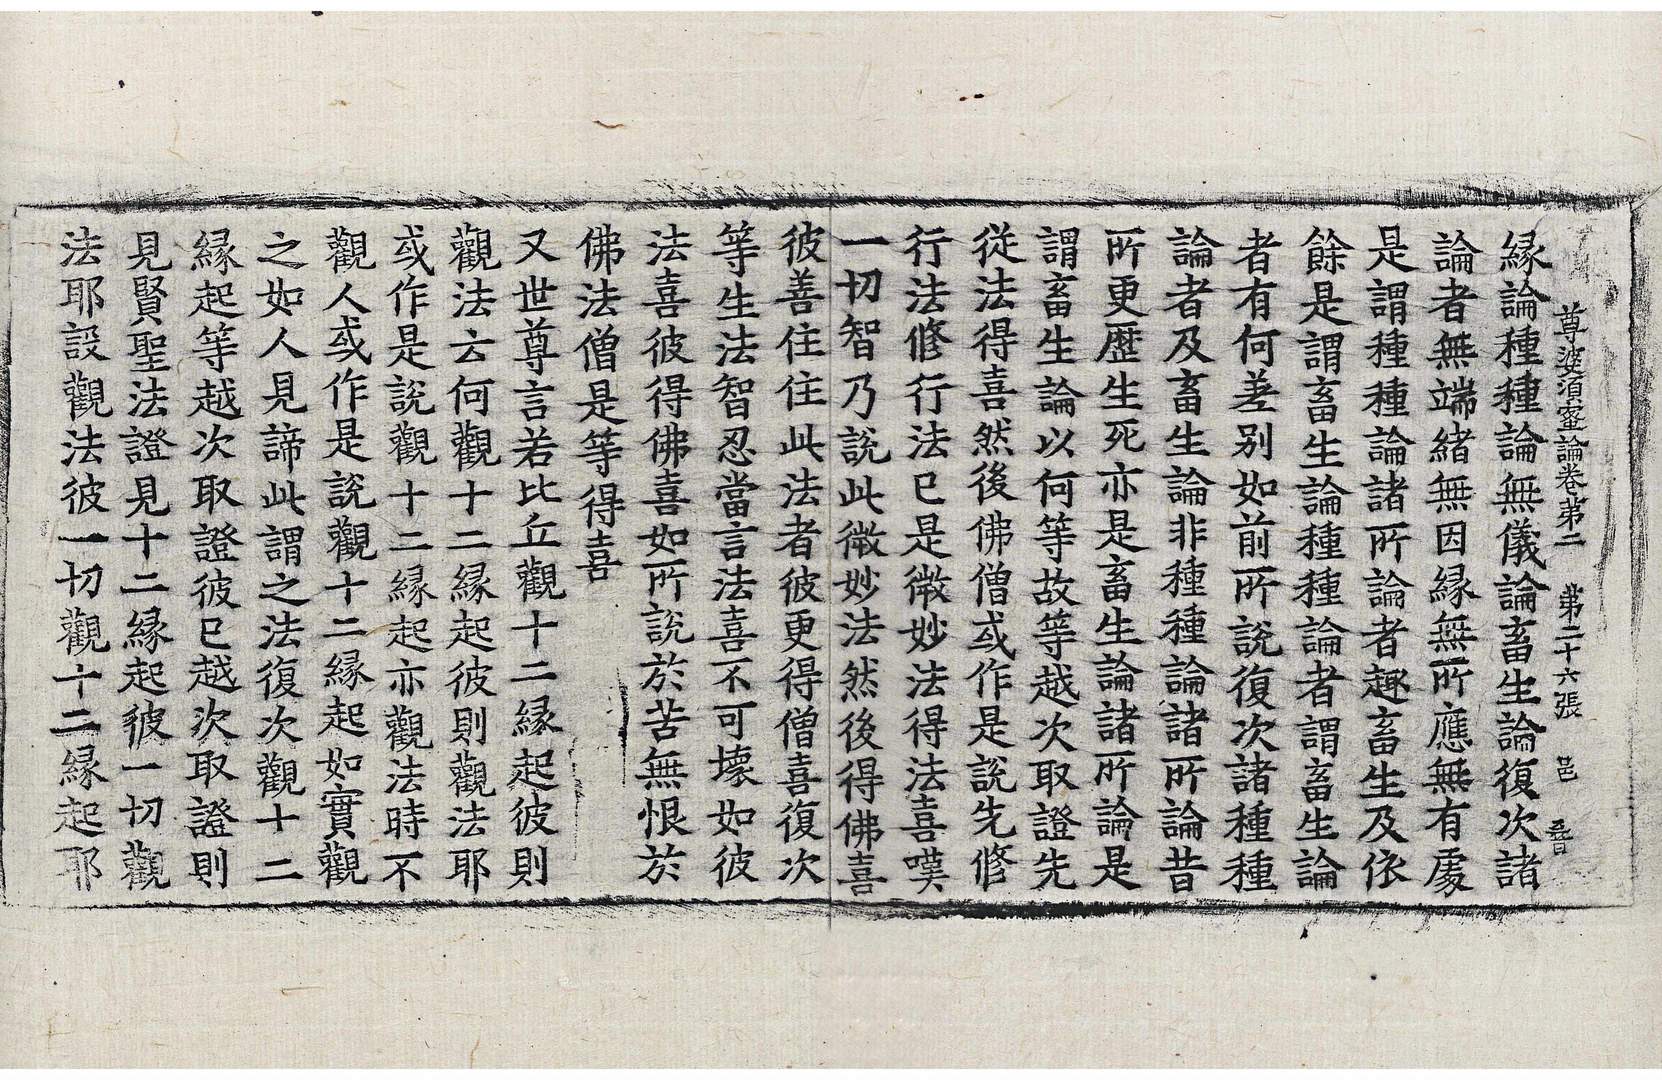 尊婆須蜜論卷第二 第二十六張 邑
緣論種種論無儀論畜生論復次諸
論者無端緒無因緣無所應無有處
是謂種種論諸所論者趣畜生及依
餘是謂畜生論種種論者謂畜生論
者有何差別如前所說復次諸種種
論者及畜生論非種種論諸所論昔
所更歷生死亦是畜生論諸所論是
謂畜生論以何等故等越次取證先
從法得喜然後佛僧或作是說先修
行法修行法已是微妙法得法喜嘆
一切智乃說此微妙法然後得佛喜
彼善住住此法者彼更得僧喜復次
等生法智忍當言法喜不可壞如彼
法喜彼得佛喜如所說於苦無恨於
佛法僧是等得喜
又世尊言若比丘觀十二緣起彼則
觀法云何觀十二緣起彼則觀法耶
或作是說觀十二緣起亦觀法時不
觀人或作是說觀十二緣起如實觀
之如人見諦此謂之法復次觀十二
緣起等越次取證彼已越次取證則
見賢聖法證見十二緣起彼一切觀
法耶設觀法彼一切觀十二緣起耶